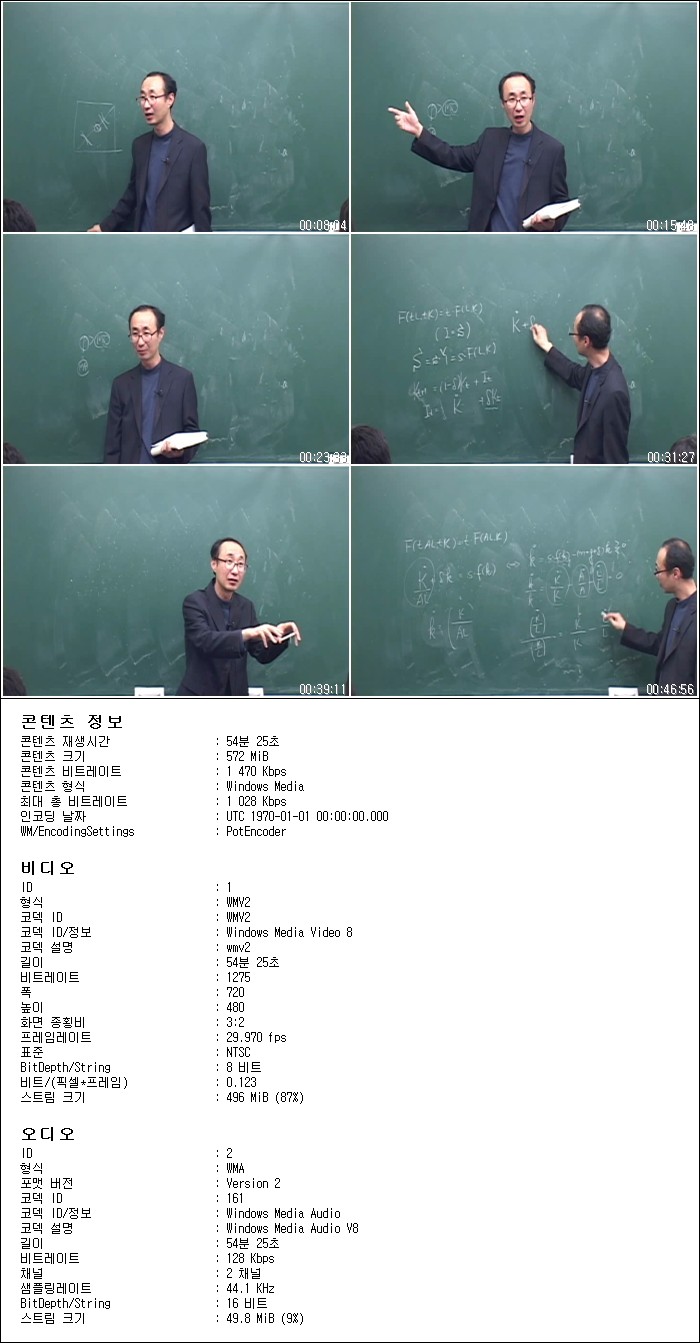 00:08:04
00:15:43
00:31:27
F(tL,tK)=t F(L,K)
(I=S)
S=sY=sF(L,K)
00:39:11
00:46:56
F(tAL,tK)=t F(AL,K)
콘텐츠 정보
콘텐츠 재생시간 : 54분 25초
콘텐츠 크기 : 572 MiB
콘텐츠 비트레이트 : 1 470 Kbps
콘텐츠 형식 : Windows Media
최대 총 비트레이트 : 1 028 Kbps
인코딩 날짜 : UTC 1970-01-01 00:00:00.000
WM/EncodingSettings : PotEncoder
비디오
ID : 1
형식 : WMV2
코덱 ID : WMV2
코덱 ID/정보 : Windows Media Video 8
코덱 설명 : wmv2
길이 : 54분 25초
비트레이트 : 1275
폭 : 720
높이 : 480
화면 종횡비 : 3:2
프레임레이트 : 29.970 fps
표준 : NTSC
BitDepth/String : 8 비트
비트/(픽셀*프레임) : 0.123
스트림 크기 : 496 MiB (87%)
오디오
ID : 2
형식 : WMA
포맷 버전 : Version 2
코덱 ID : 161
코덱 ID/정보 : Windows Media Audio
코덱 설명 : Windows Media Audio V8
길이 : 54분 25초
비트레이트 : 128 Kbps
채널 : 2 채널
샘플링레이트 : 44.1 KHz
BitDepth/String : 16 비트
스트림 크기 : 49.8 MiB (9%)